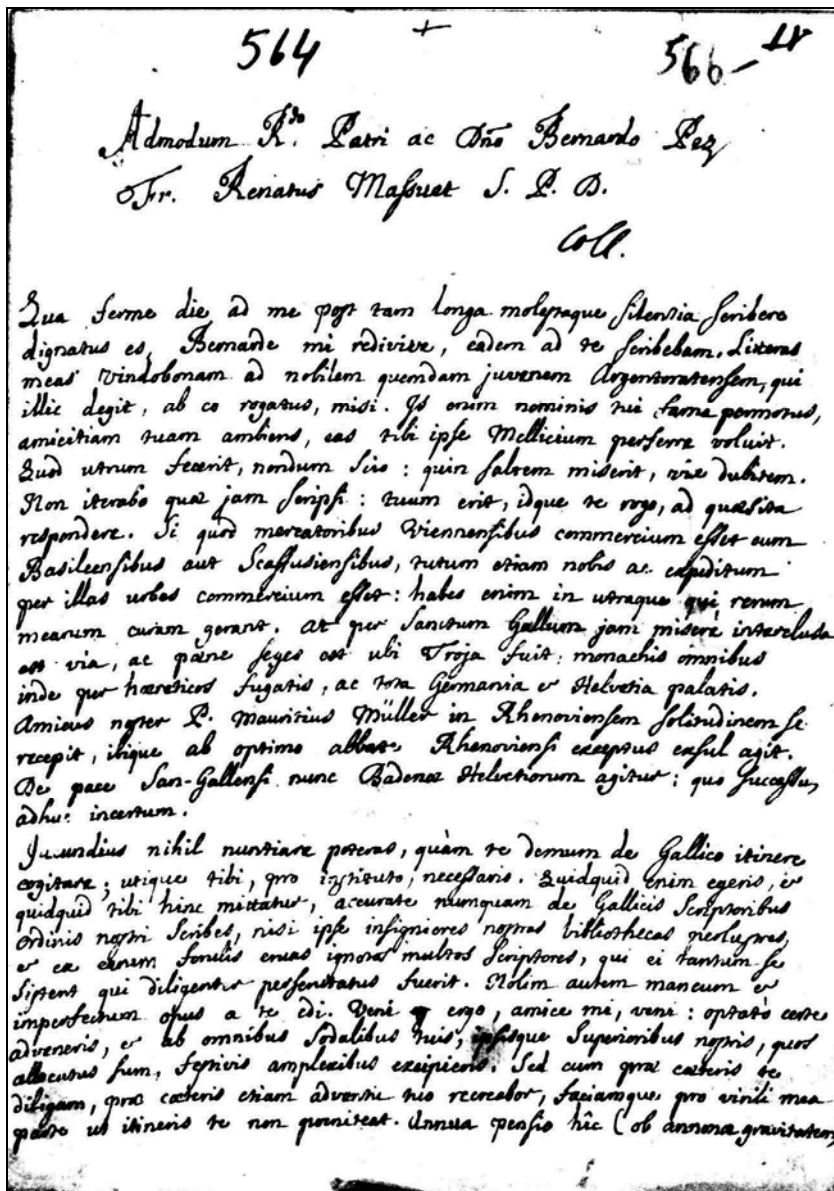 564 + 566 -
Admodum R.do Patri ac Dño Bernardo Pez
Fr. Renatus Massuet S. P. D.
Coll.
Qua ferme die ad me post tam longa molestaque silentia scribere
dignatus es, Bernarde mi redivive, eadem ad te scribebam. Litteras
meas Vindobonam ad nobilem quemdam juvenem Argentoratensem, qui
illic degit, ab eo rogatus, misi. Is enim nominis tui fama permotus,
amicitiam tuam ambiens, eas tibi ipse Mellicium perferre voluit.
Quod utrum fecerit, nondum scio : quin saltem miserit, vix dubitem.
Non iterabo quæ jam scripsi : tuum erit, idque te rogo, ad quæsita
respondere. Si quod mercatoribus Viennensibus commercium esset cum
Basileensibus aut Scaffusiensibus, tutum etiam nobis ac expeditum
per illas urbes commercium esset : habes enim in utraque qui rerum
mearum curam gerant. At per Sanctum Gallum jam miserè interclusa
est via, ac pæne seges est ubi Troja fuit : monachis omnibus
inde per hæreticos fugatis, ac tota Germania et Helvetia palatis.
Amicus noster P. Mauritius Müller in Rhenoviensem solitudinem se
recepit, ibique ab optimo abbate Rhenoviensi exceptus exsul agit.
De pace San-Gallensi nunc Badenæ Helvetiorum agitur : quo successu,
adhuc incertum.
Jucundius nihil nuntiare poteras, quàm te demum de Gallico itinere
cogitare ; utique tibi, pro instituto, necessario. Quidquid enim egeris, et
quidquid tibi hinc mittatur, accurate numquam de Gallicis Scriptoribus
Ordinis nostri scribes, nisi ipse insigniores nostras bibliothecas perlustres,
et ex earum forulis eruas ignotos multos scriptores, qui ei tantum se
sistent qui diligenter perscrutatus fuerit. Nolim autem mancum et
imperfectum opus a te edi. Veni ergo, amice mi, veni : optatò certe
adveneris, et ab omnibus sodalibus tuis, ipsisque Superioribus nostris, quos
allocutus sum, festivis amplexibus excipieris. Sed cum præ cæteris te
diligam, præ cæteris etiam adventu tuo recreabor, faciamque pro virili mea
parte ut itineris te non pœniteat. Annua pensio hîc (ob annonæ gravitatem,